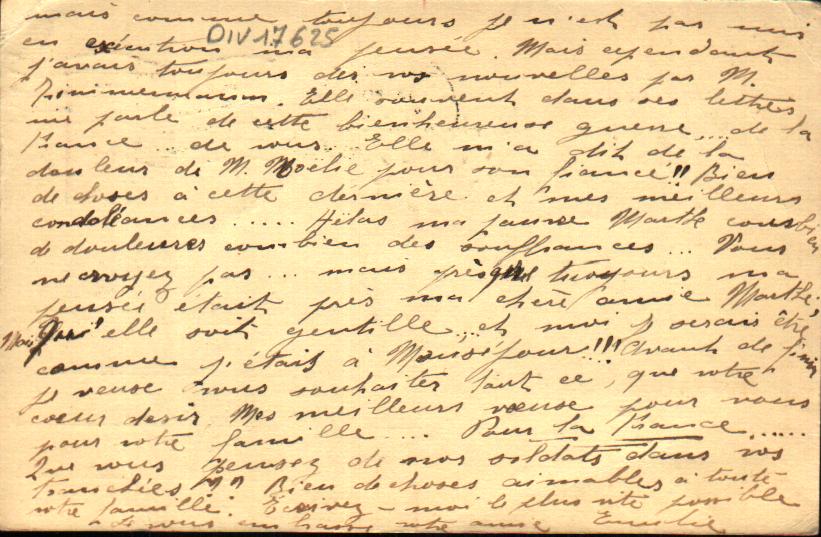 mais comme toujours je n'est pas mis
en exécution ma pensée. Mais cependant
DIV17625
j'avais toujours des vos nouvelles par M.
Zimmermann. Elle souvent dans ses lettres
me parle de cette bienheureuse guerre... de la
France... de vous.. Elle m'a dit de la
douleur de M. pour son fiancé!! Bien
de choses à cette dernière et mes meilleurs
condoléances ..... Hélas ma pauvre Marthe combien
de douleures combien des souffrances... Vous
ne croyez pas... mais presque toujours ma
pensée était près ma chère amie Marthe,
Mais qu'elle soit gentille, et moi je serais être
comme j'étais à Monséjour!!! Avant de finir
je veuse vous souhaiter tout ce, que votre
cœur desir. Mes meilleurs vœuse pour vous
pour votre famille.... Pour la France......
Que vous pensez de nos soldats dans vos
tranchées?? Bien de choses aimables à toute
votre famille. Ecrivez-moi le plus vite possible
Je vous embrasse votre amie Emilie